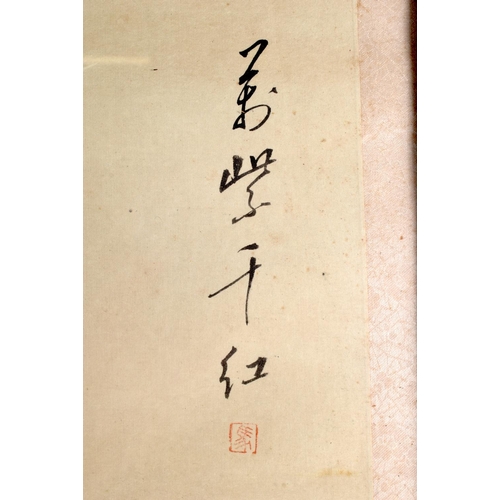 萬紫千紅